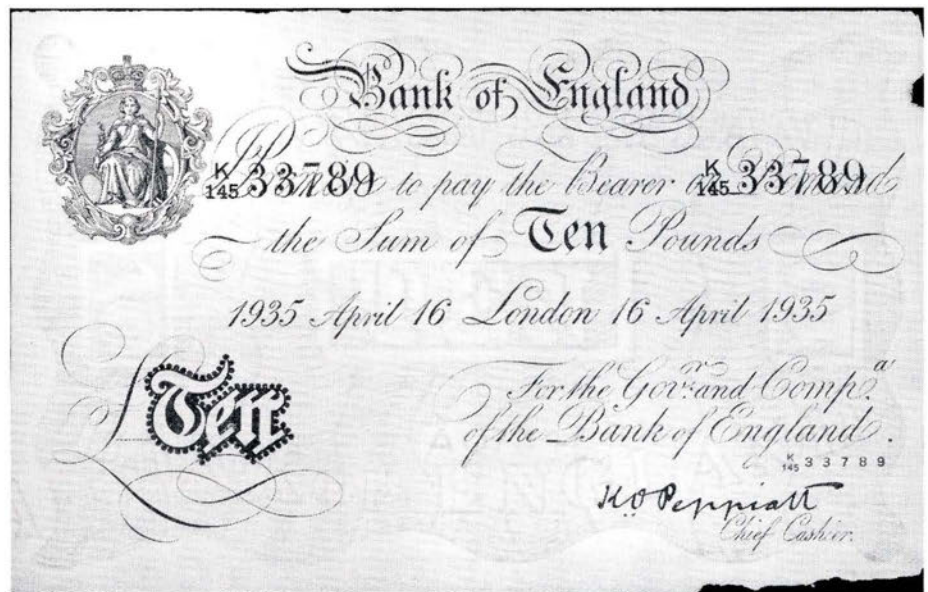 Bank of England
K/145 33789 Promise to pay the Bearer on Demand K/145 33789
the Sum of Ten Pounds
1935 April 16 London 16 April 1935
£Ten
For the Gov.r and Comp.a
of the Bank of England.
K/145 33789
K.O. Peppiatt
Chief Cashier.